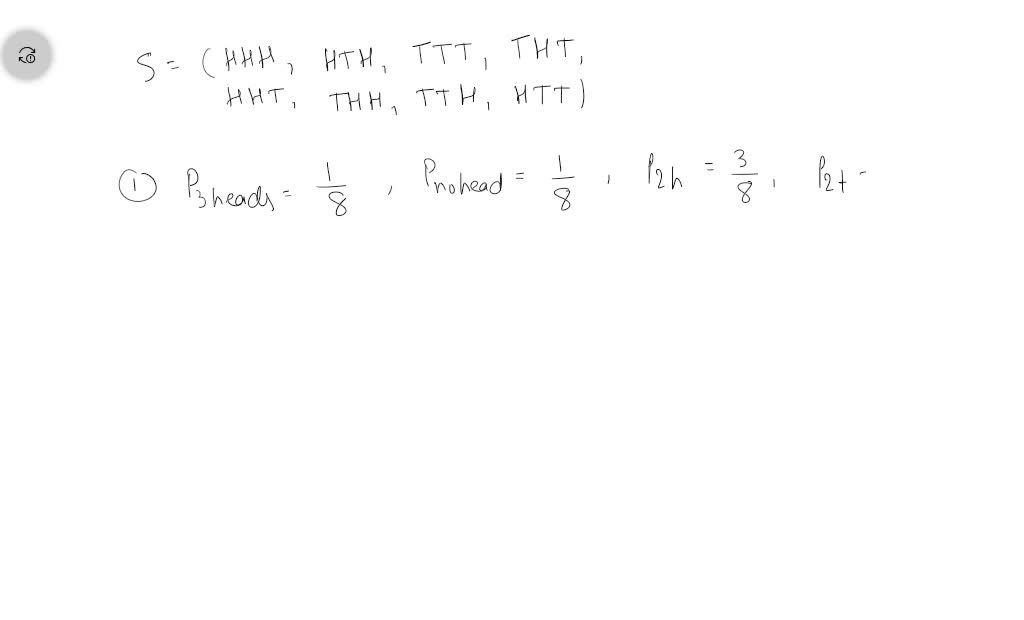 S = (HHH, HTH, TTT, THT,
HHT, THH, TTH, HTT)
① P3heads = 1/8, Pnohead = 1/8, P2h = 3/8, P2t -